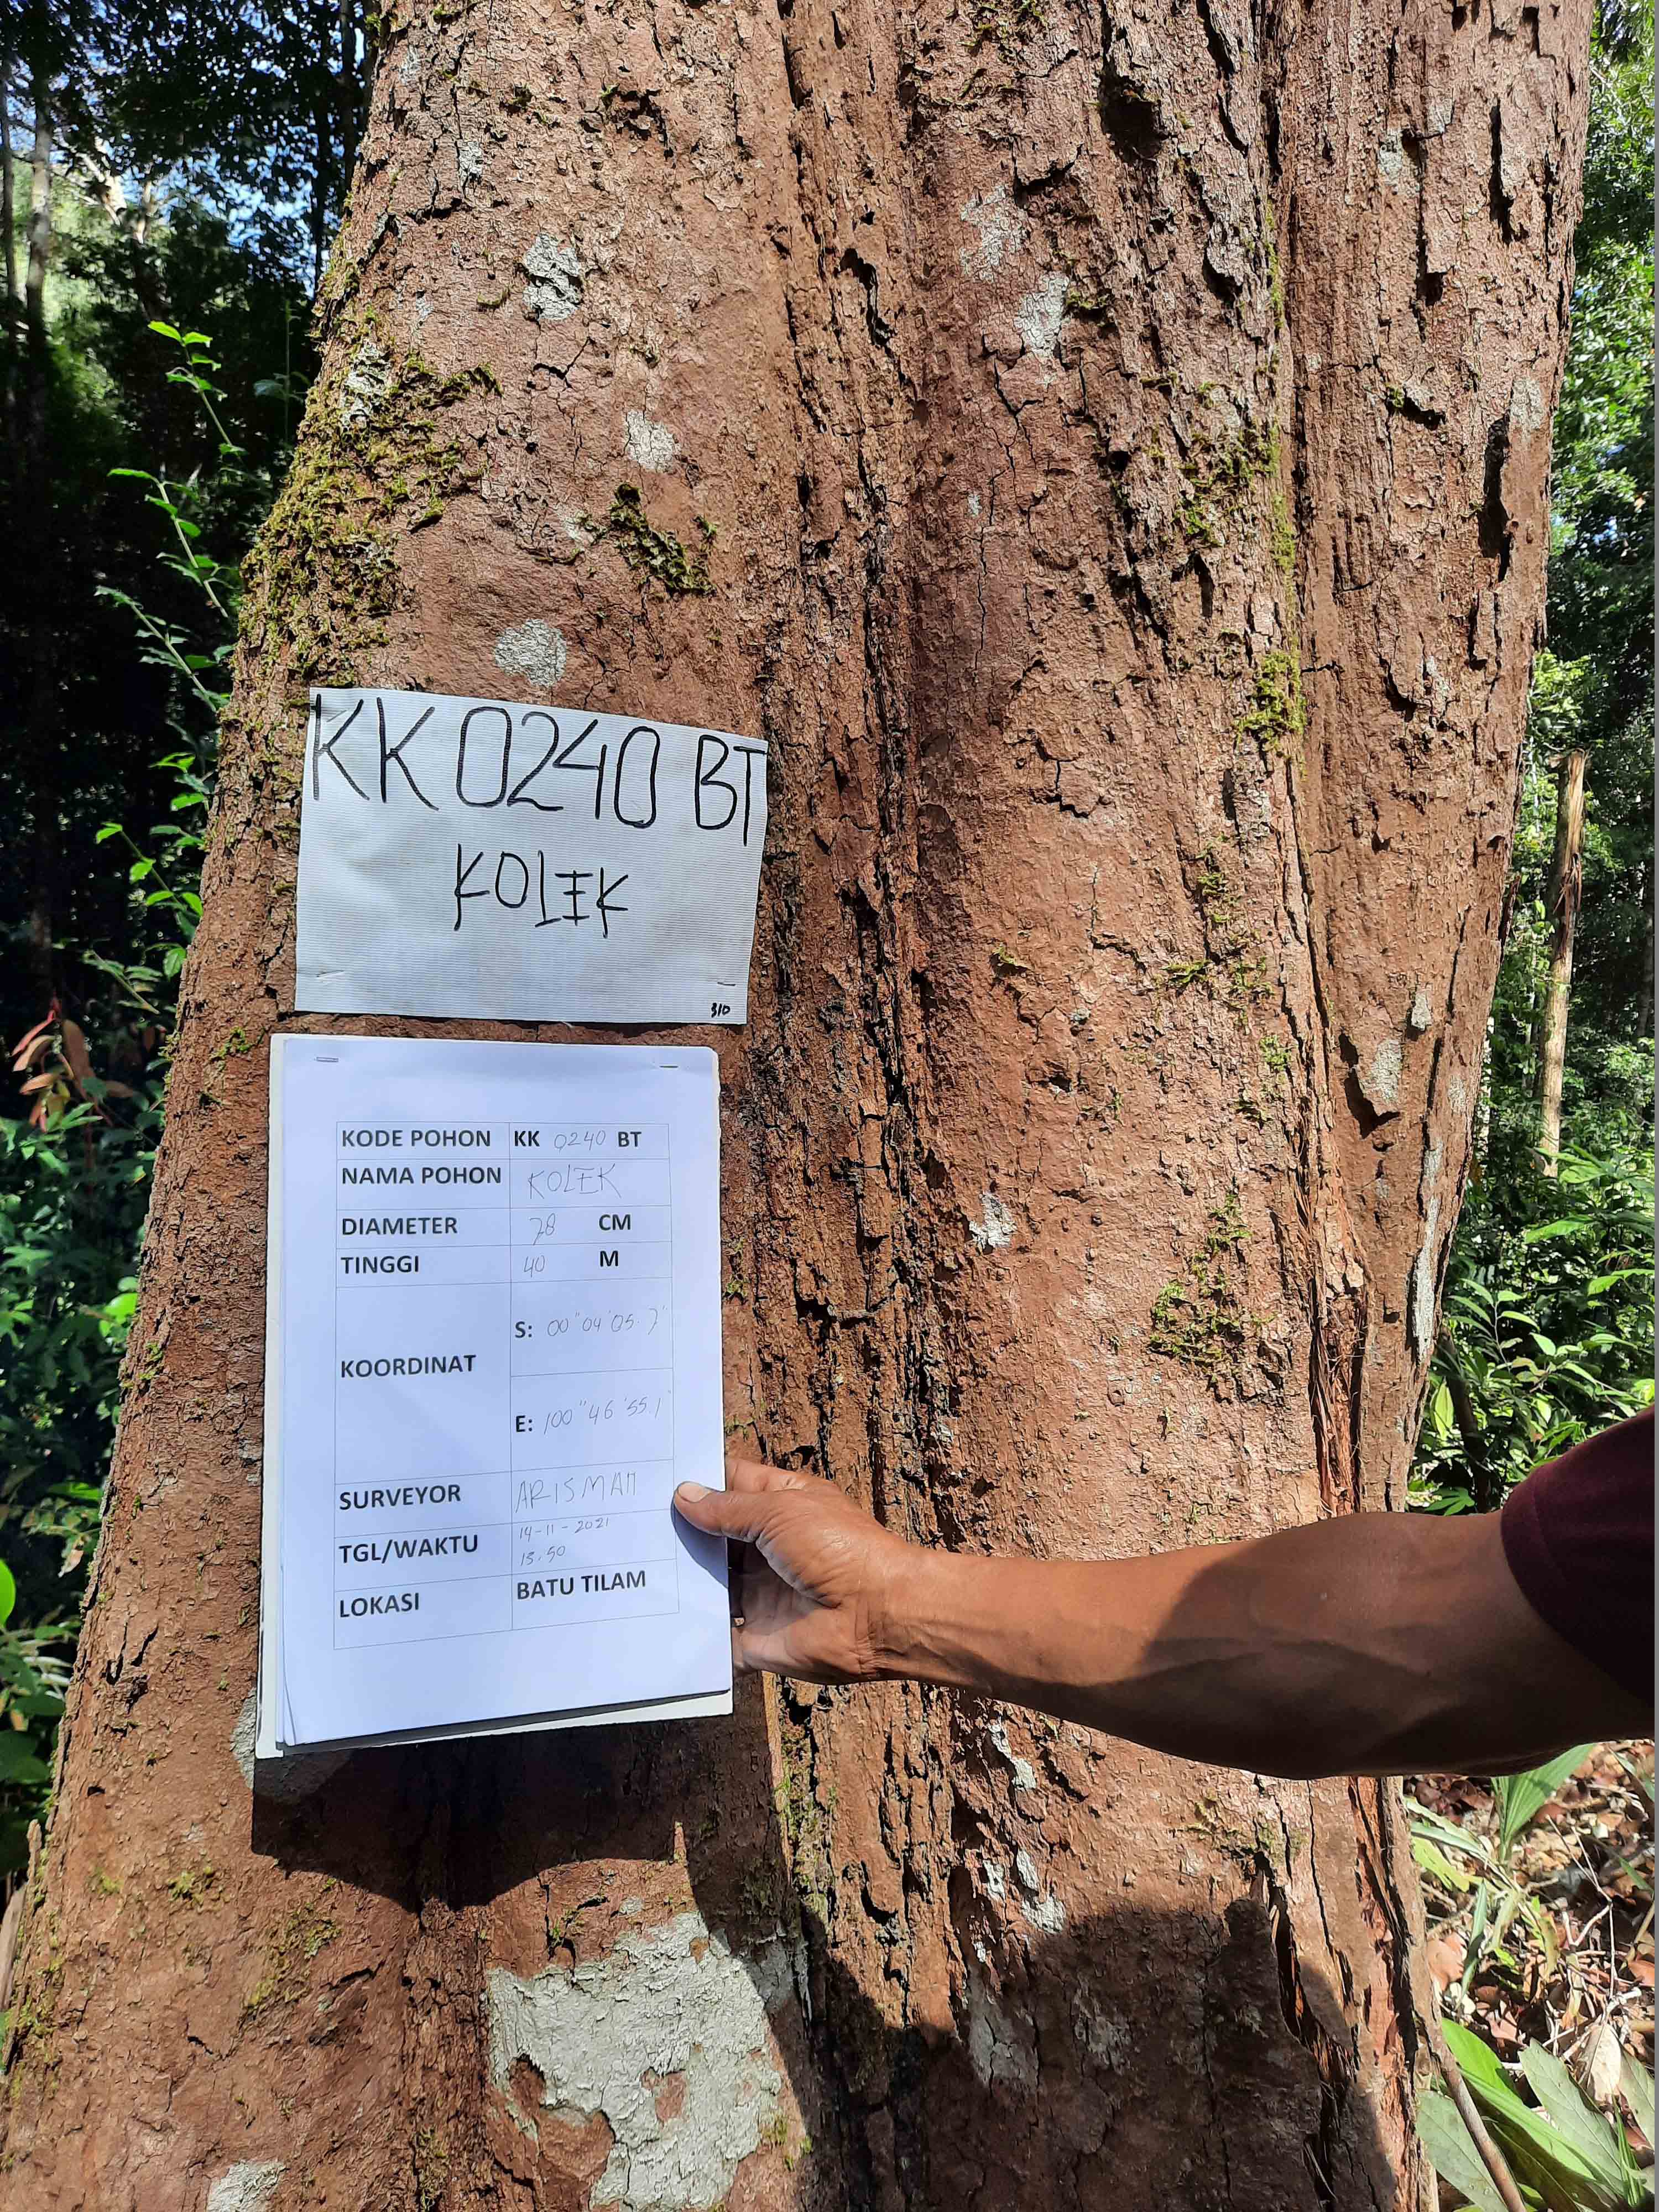 KK 0240 BT
KOLEK
310
KODE POHON KK 0240 BT
NAMA POHON KOLEK
DIAMETER 78 CM
TINGGI 40 M
KOORDINAT
S: 00"04'05.7'
E: 100"46'55.1'
SURVEYOR ARISMAN
TGL/WAKTU 14-11-2021
13.50
LOKASI BATU TILAM